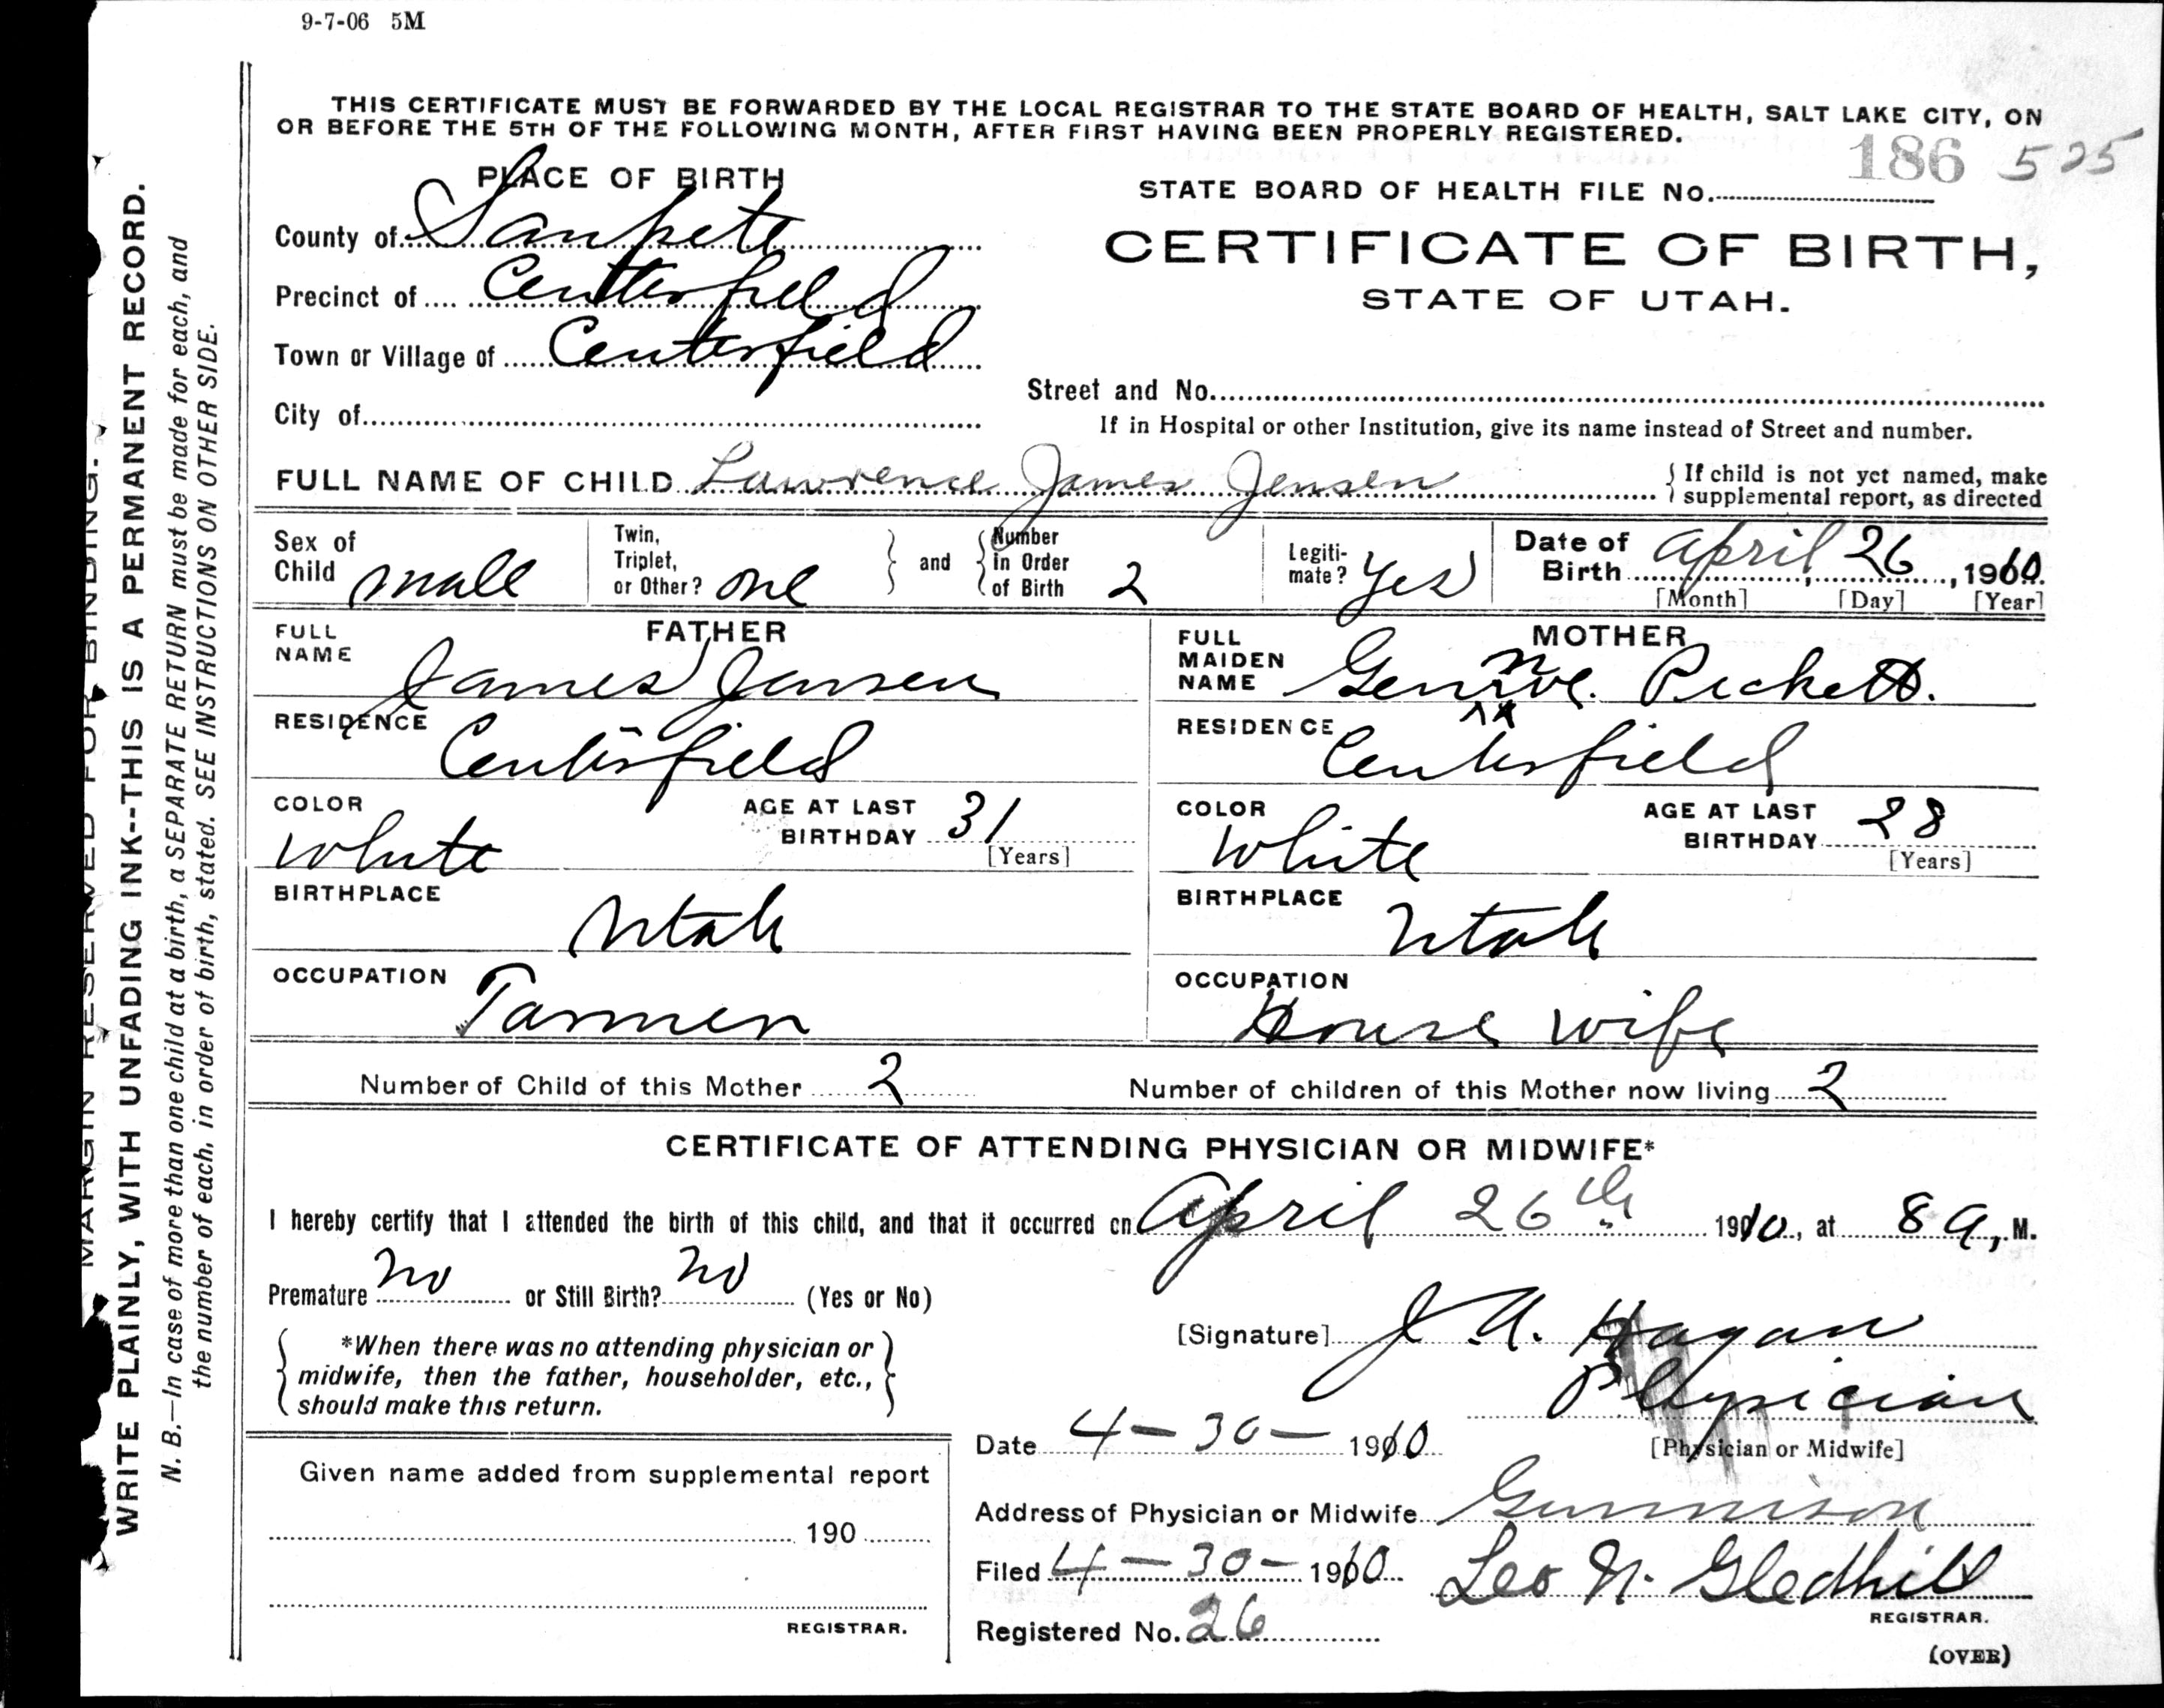 9-7-06 5M
THIS CERTIFICATE MUST BE FORWARDED BY THE LOCAL REGISTRAR TO THE STATE BOARD OF HEALTH, SALT LAKE CITY, ON
OR BEFORE THE 5TH OF THE FOLLOWING MONTH, AFTER FIRST HAVING BEEN PROPERLY REGISTERED.
186 525
PLACE OF BIRTH
STATE BOARD OF HEALTH FILE No.
County of Sanpete
CERTIFICATE OF BIRTH,
Precinct of Centerfield
STATE OF UTAH.
Town or Village of Centerfield
Street and No.
City of
If in Hospital or other Institution, give its name instead of Street and number.
FULL NAME OF CHILD Lawrence James Jensen
{ If child is not yet named, make
supplemental report, as directed
Sex of Child male
Twin, Triplet, or Other? one } and { Number in Order of Birth 2
Legiti-mate? Yes
Date of Birth April 26, 1910.
[Month] [Day] [Year]
FATHER
FULL NAME James Jensen
RESIDENCE Centerfield
COLOR White
AGE AT LAST BIRTHDAY 31
[Years]
BIRTHPLACE Utah
OCCUPATION Farmer
MOTHER
FULL MAIDEN NAME Pickett.
RESIDENCE Centerfield
COLOR White
AGE AT LAST BIRTHDAY 28
[Years]
BIRTHPLACE Utah
OCCUPATION House wife
Number of Child of this Mother 2
Number of children of this Mother now living 2
CERTIFICATE OF ATTENDING PHYSICIAN OR MIDWIFE*
I hereby certify that I attended the birth of this child, and that it occurred on April 26th 1910, at 8 a, M.
Premature no or Still Birth? no (Yes or No)
*When there was no attending physician or
midwife, then the father, householder, etc.,
should make this return.
[Signature] J. A. Hagan
Physician
[Physician or Midwife]
Date 4-30-1910
Address of Physician or Midwife Gunnison
Filed 4-30-1910 Leo N. Gledhill
REGISTRAR.
Registered No. 26
(OVER)
Given name added from supplemental report
190
REGISTRAR.
MARGIN RESERVED FOR BINDING.
WRITE PLAINLY, WITH UNFADING INK--THIS IS A PERMANENT RECORD.
N. B.—In case of more than one child at a birth, a SEPARATE RETURN must be made for each, and
the number of each, in order of birth, stated. SEE INSTRUCTIONS ON OTHER SIDE.